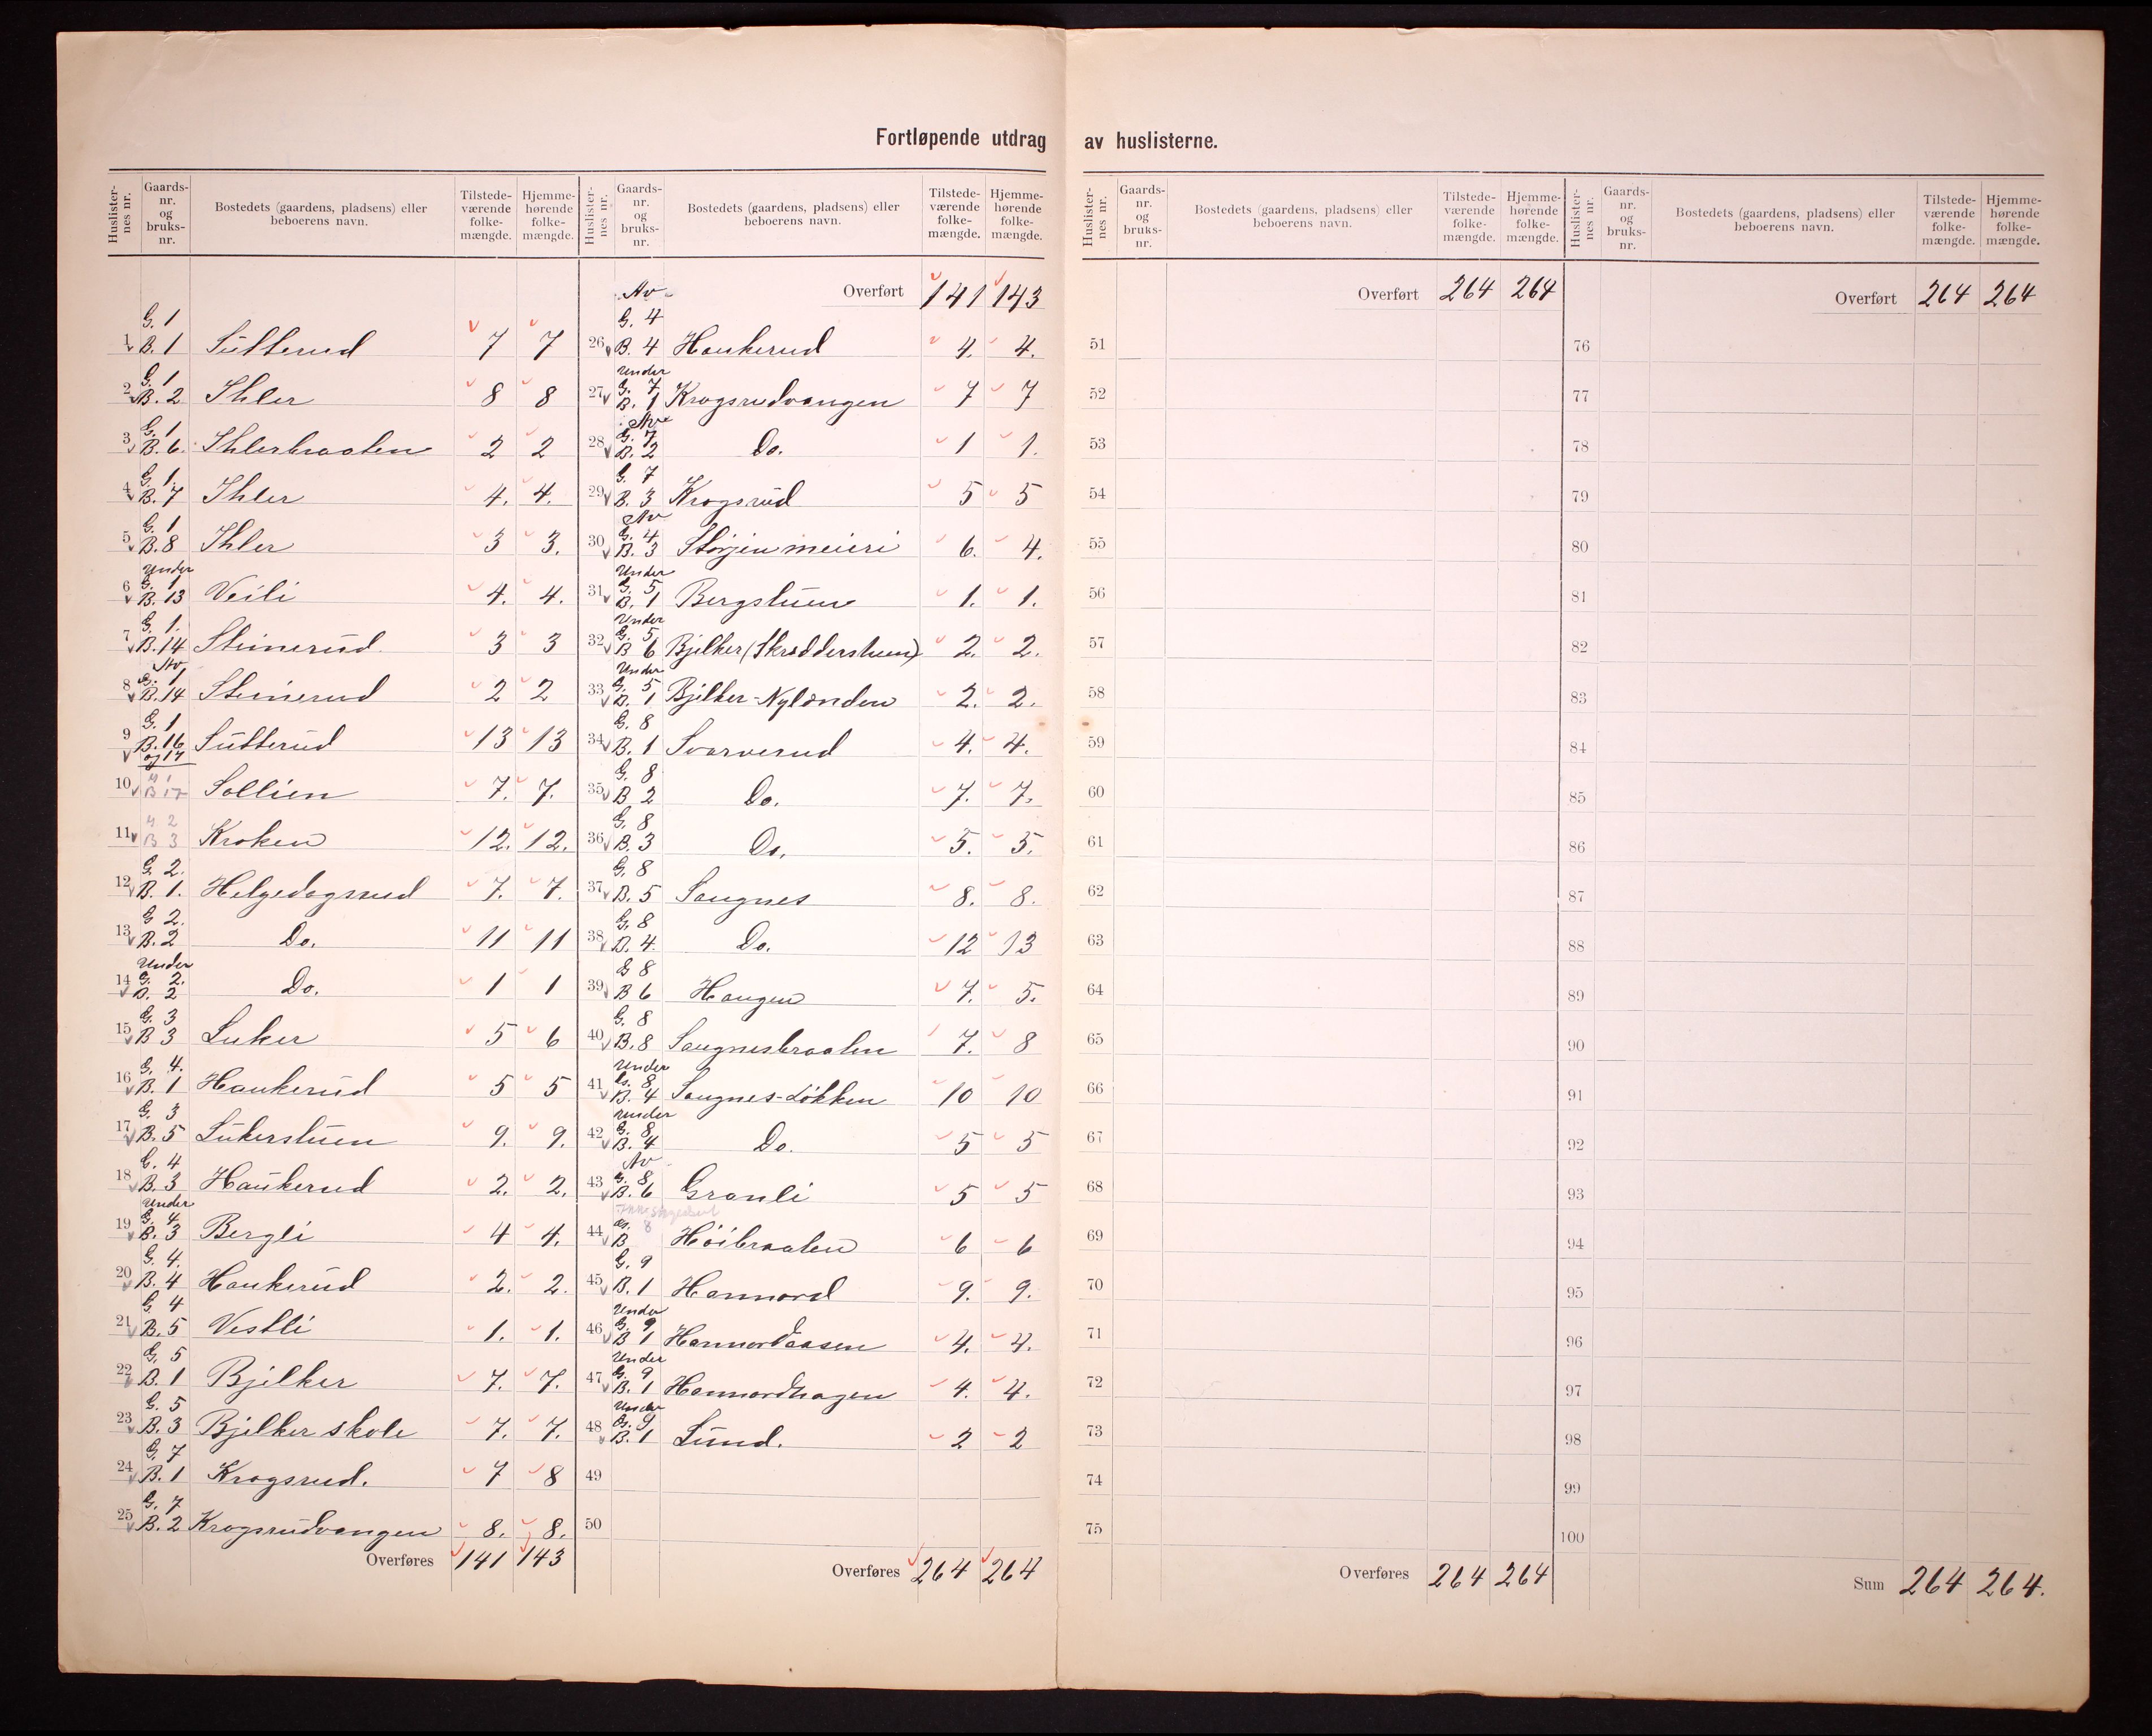 Fortløpende utdrag av huslisterne.
Huslisternes nr. Gaardsnr. og bruksnr. Bostedets (gaardens, pladsens) eller beboerens navn. Tilstedeværende folkemængde. Hjemmehørende folkemængde.
G. 1
1 B. 1 Sutterud 7 7
G. 1
2 B. 2 Ihler 8 8
G. 1
3 B. 6. Ihlerbraaten 2 2
G. 1.
4 B. 7 Ihler 4. 4.
G. 1
5 B. 8 Ihler 3 3.
Under
G. 1
6 B. 13 Veili 4. 4.
G. 1.
7 B. 14 Steinerud 3 3
Av
G. 1
8 B. 14 Steinerud 2 2
G. 1
9 B. 16 og 17 Sutterud 13 13
G 1
10 B 17 Sollien 7. 7.
G 2
11 B 3 Kroken 12. 12.
G. 2.
12 B. 1. Helgedagsrud 7. 7.
G 2.
13 B. 2 Do. 11 11
Under
G. 2.
14 B. 2 Do. 1 1
G. 3
15 B 3 Luker 5 6
G. 4.
16 B. 1 Haukerud 5 5
G. 3
17 B. 5 Lukerstuen 9. 9.
G. 4
18 B. 3 Haukerud 2. 2.
Under
G. 4
19 B. 3 Bergli 4 4.
G. 4.
20 B. 4 Haukerud 2. 2.
G. 4
21 B. 5 Vestli 1. 1.
G. 5
22 B. 1 Bjelker 7. 7.
G. 5
23 B. 3 Bjelker skole 7. 7.
G. 7
24 B. 1 Krogsrud. 7 8
G. 7
25 B. 2 Krogsrudvangen 8. 8.
Overføres 141 143
Huslisternes nr. Gaardsnr. og bruksnr. Bostedets (gaardens, pladsens) eller beboerens navn. Tilstedeværende folkemængde. Hjemmehørende folkemængde.
Overført 141 143
Av
G. 4
26 B. 4 Haukerud 4. 4.
Under
G. 7
27 B. 1 Krogsrudvangen 7 7
Av
G. 7
28 B. 2 Do. 1 1.
G. 7
29 B. 3 Krogsrud 5 5
Av
G. 4
30 B. 3 Storjen meieri 6. 4.
Under
G. 5
31 B. 1 Bergstuen 1. 1.
Under
G. 5
32 B 6 Bjelker (Skrædderstuen) 2. 2.
Under
G. 5
33 B. 1 Bjelker-Nylænden 2. 2.
G. 8
34 B. 1 Svarverud 4. 4.
G. 8
35 B 2 Do. 7. 7.
G. 8
36 B. 3 Do. 5. 5.
G. 8
37 B. 5 Saugnes 8. 8.
G. 8
38 B. 4. Do. 12 13
G 8
39 B 6 Haugen 7. 5.
G. 8
40 B. 8 Saugnesbraaten 7. 8
Under
G. 8
41 B. 4 Saugnes-Løkken 10 10
Under
G. 8
42 B. 4 Do. 5 5
Av
G. 8
43 B. 6 Granli 5 5
G. 8
44 B Høibraaten 6 6
G. 9
45 B. 1 Hannord 9. 9.
Under
G. 9
46 B 1 Hannordaasen 4. 4.
Under
G. 9
47 B. 1 Hannordhagen 4. 4.
Under
G. 9
48 B. 1 Lund. 2 2
49
50
Overføres 264 264
Huslisternes nr. Gaardsnr. og bruksnr. Bostedets (gaardens, pladsens) eller beboerens navn. Tilstedeværende folkemængde. Hjemmehørende folkemængde.
Overført 264 264
51
52
53
54
55
56
57
58
59
60
61
62
63
64
65
66
67
68
69
70
71
72
73
74
75
Overføres 264 264
Huslisternes nr. Gaardsnr. og bruksnr. Bostedets (gaardens, pladsens) eller beboerens navn. Tilstedeværende folkemængde. Hjemmehørende folkemængde.
Overført 264 264
76
77
78
79
80
81
82
83
84
85
86
87
88
89
90
91
92
93
94
95
96
97
98
99
100
Sum 264 264.